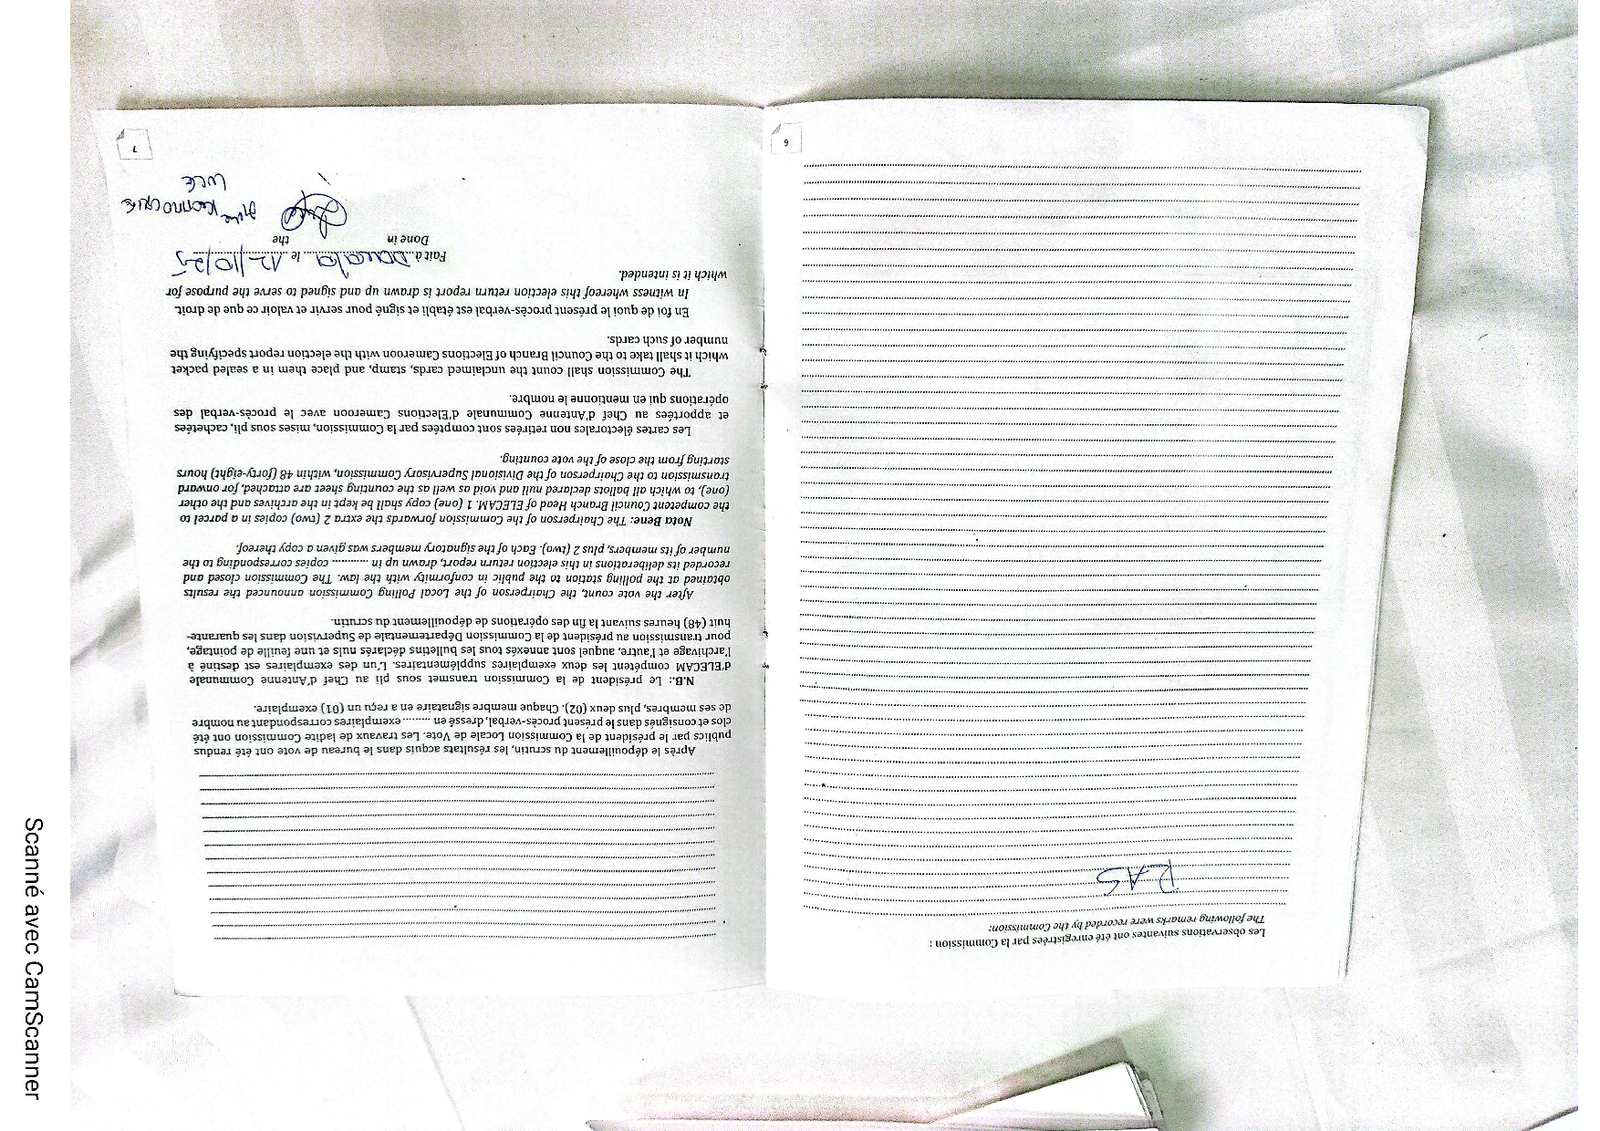 Les observations suivantes ont été enregistrées par la Commission :
The following remarks were recorded by the Commission:
RAS
6
Après le dépouillement du scrutin, les résultats acquis dans le bureau de vote ont été rendus
publics par le président de la Commission Locale de Vote. Les travaux de ladite Commission ont été
clos et consignés dans le présent procès-verbal, dressé en ......... exemplaires correspondant au nombre
de ses membres, plus deux (02). Chaque membre signataire en a reçu un (01) exemplaire.
N.B.: Le président de la Commission transmet sous pli au Chef d'Antenne Communale
d'ELECAM compétent les deux exemplaires supplémentaires. L'un des exemplaires est destiné à
l'archivage et l'autre, auquel sont annexés tous les bulletins déclarés nuls et une feuille de pointage,
pour transmission au président de la Commission Départementale de Supervision dans les quarante-
huit (48) heures suivant la fin des opérations de dépouillement du scrutin.
After the vote count, the Chairperson of the Local Polling Commission announced the results
obtained at the polling station to the public in conformity with the law. The Commission closed and
recorded its deliberations in this election return report, drawn up in .......... copies corresponding to the
number of its members, plus 2 (two). Each of the signatory members was given a copy thereof.
Nota Bene: The Chairperson of the Commission forwards the extra 2 (two) copies in a parcel to
the competent Council Branch Head of ELECAM. 1 (one) copy shall be kept in the archives and the other
(one), to which all ballots declared null and void as well as the counting sheet are attached, for onward
transmission to the Chairperson of the Divisional Supervisory Commission, within 48 (forty-eight) hours
starting from the close of the vote counting.
Les cartes électorales non retirées sont comptées par la Commission, mises sous pli, cachetées
et apportées au Chef d'Antenne Communale d'Elections Cameroon avec le procès-verbal des
opérations qui en mentionne le nombre.
The Commission shall count the unclaimed cards, stamp, and place them in a sealed packet
which it shall take to the Council Branch of Elections Cameroon with the election report specifying the
number of such cards.
En foi de quoi le présent procès-verbal est établi et signé pour servir et valoir ce que de droit.
In witness whereof this election return report is drawn up and signed to serve the purpose for
which it is intended.
Fait à Douala le 12/10/25
Done in the
LUCE
7
Scanné avec CamScanner